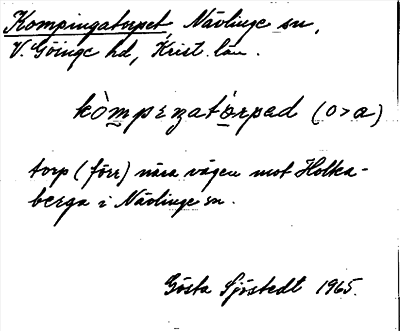 Kompingatorpet, Nävlinge sn,
V. Göinge hd, Krist. län.
kòmpıŋatòrpad (o>a)
torp (förr) nära vägen mot Holka-
berga i Nävlinge sn.
Gösta Sjöstedt 1965.